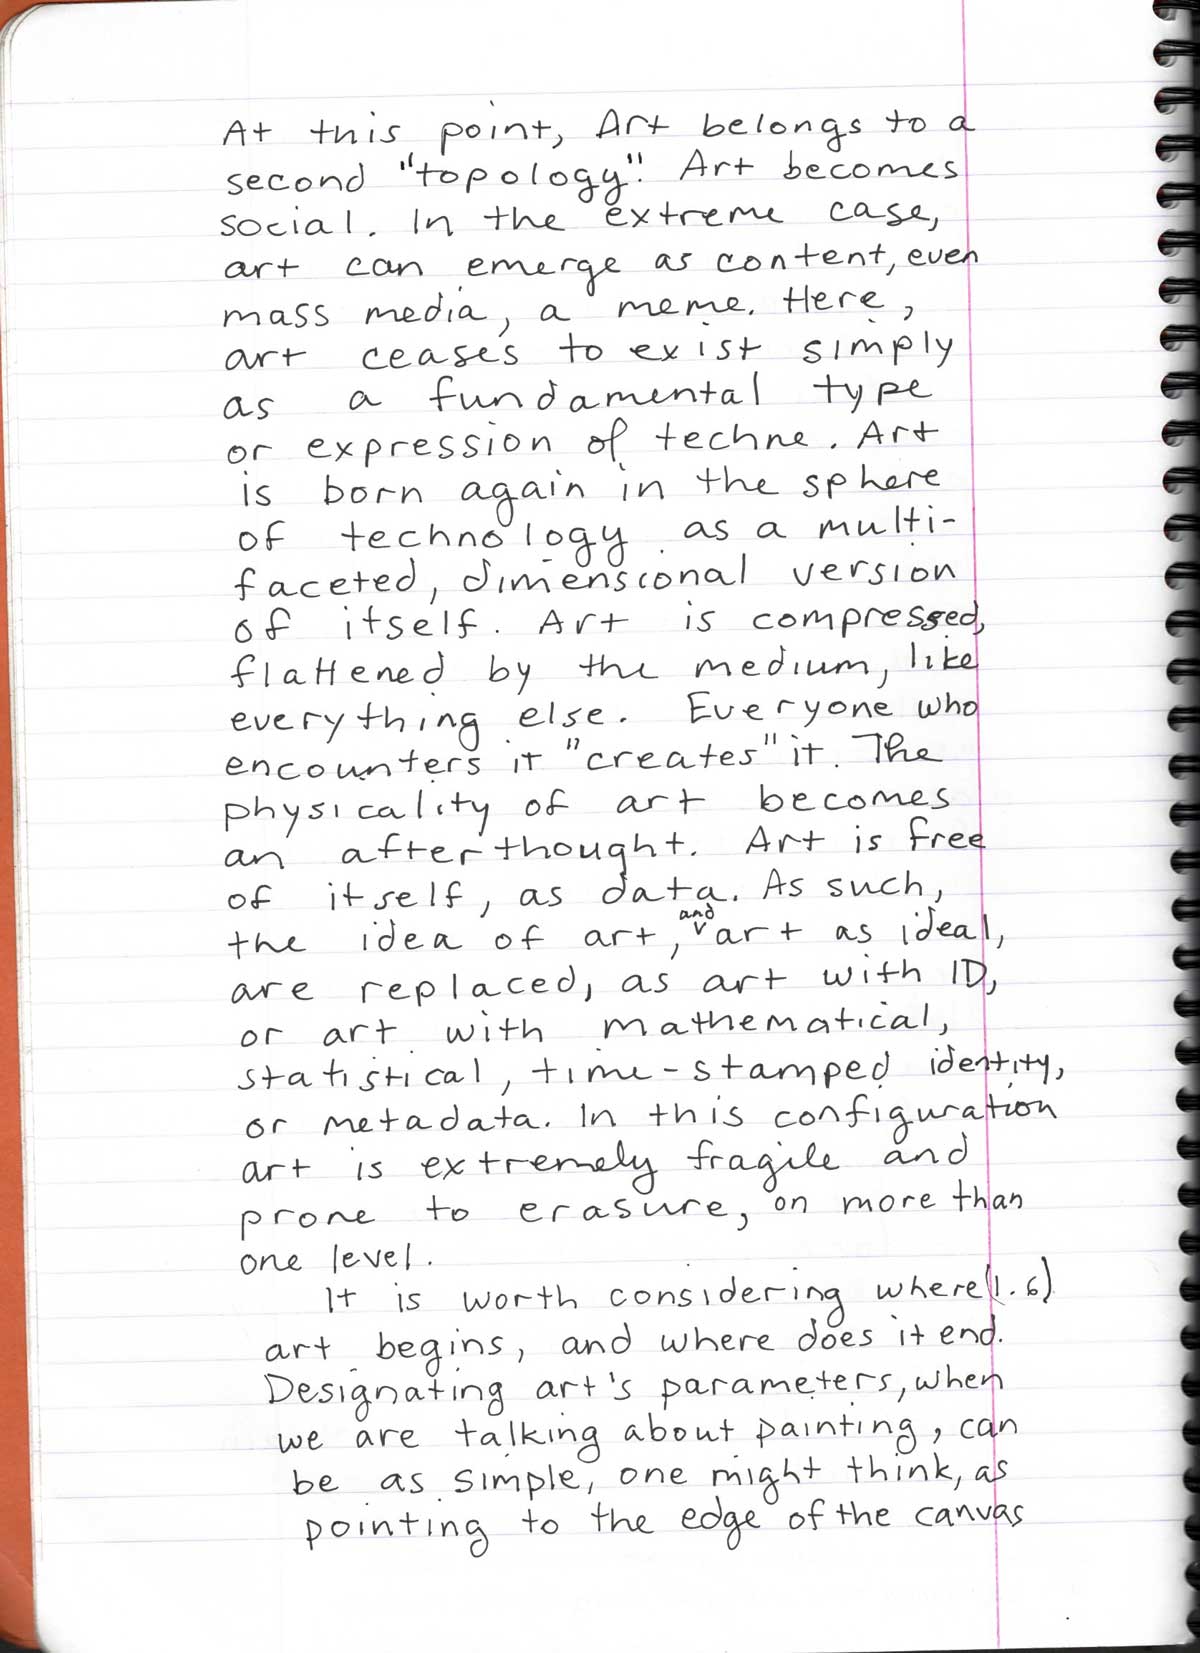 At this point, Art belongs to a
second "topology". Art becomes
social. In the extreme case,
art can emerge as content, even
mass media, a meme. Here,
art ceases to exist simply
as a fundamental type
or expression of techne. Art
is born again in the sphere
of technology as a multi-
faceted, dimensional version
of itself. Art is compressed,
flattened by the medium, like
everything else. Everyone who
encounters it "creates" it. The
physicality of art becomes
an afterthought. Art is free
of itself, as data. As such,
the idea of art, and art as ideal,
are replaced, as art with ID,
or art with mathematical,
statistical, time-stamped identity,
or metadata. In this configuration
art is extremely fragile and
prone to erasure, on more than
one level.
It is worth considering where (1.6)
art begins, and where does it end.
Designating art's parameters, when
we are talking about painting, can
be as simple, one might think, as
pointing to the edge of the canvas